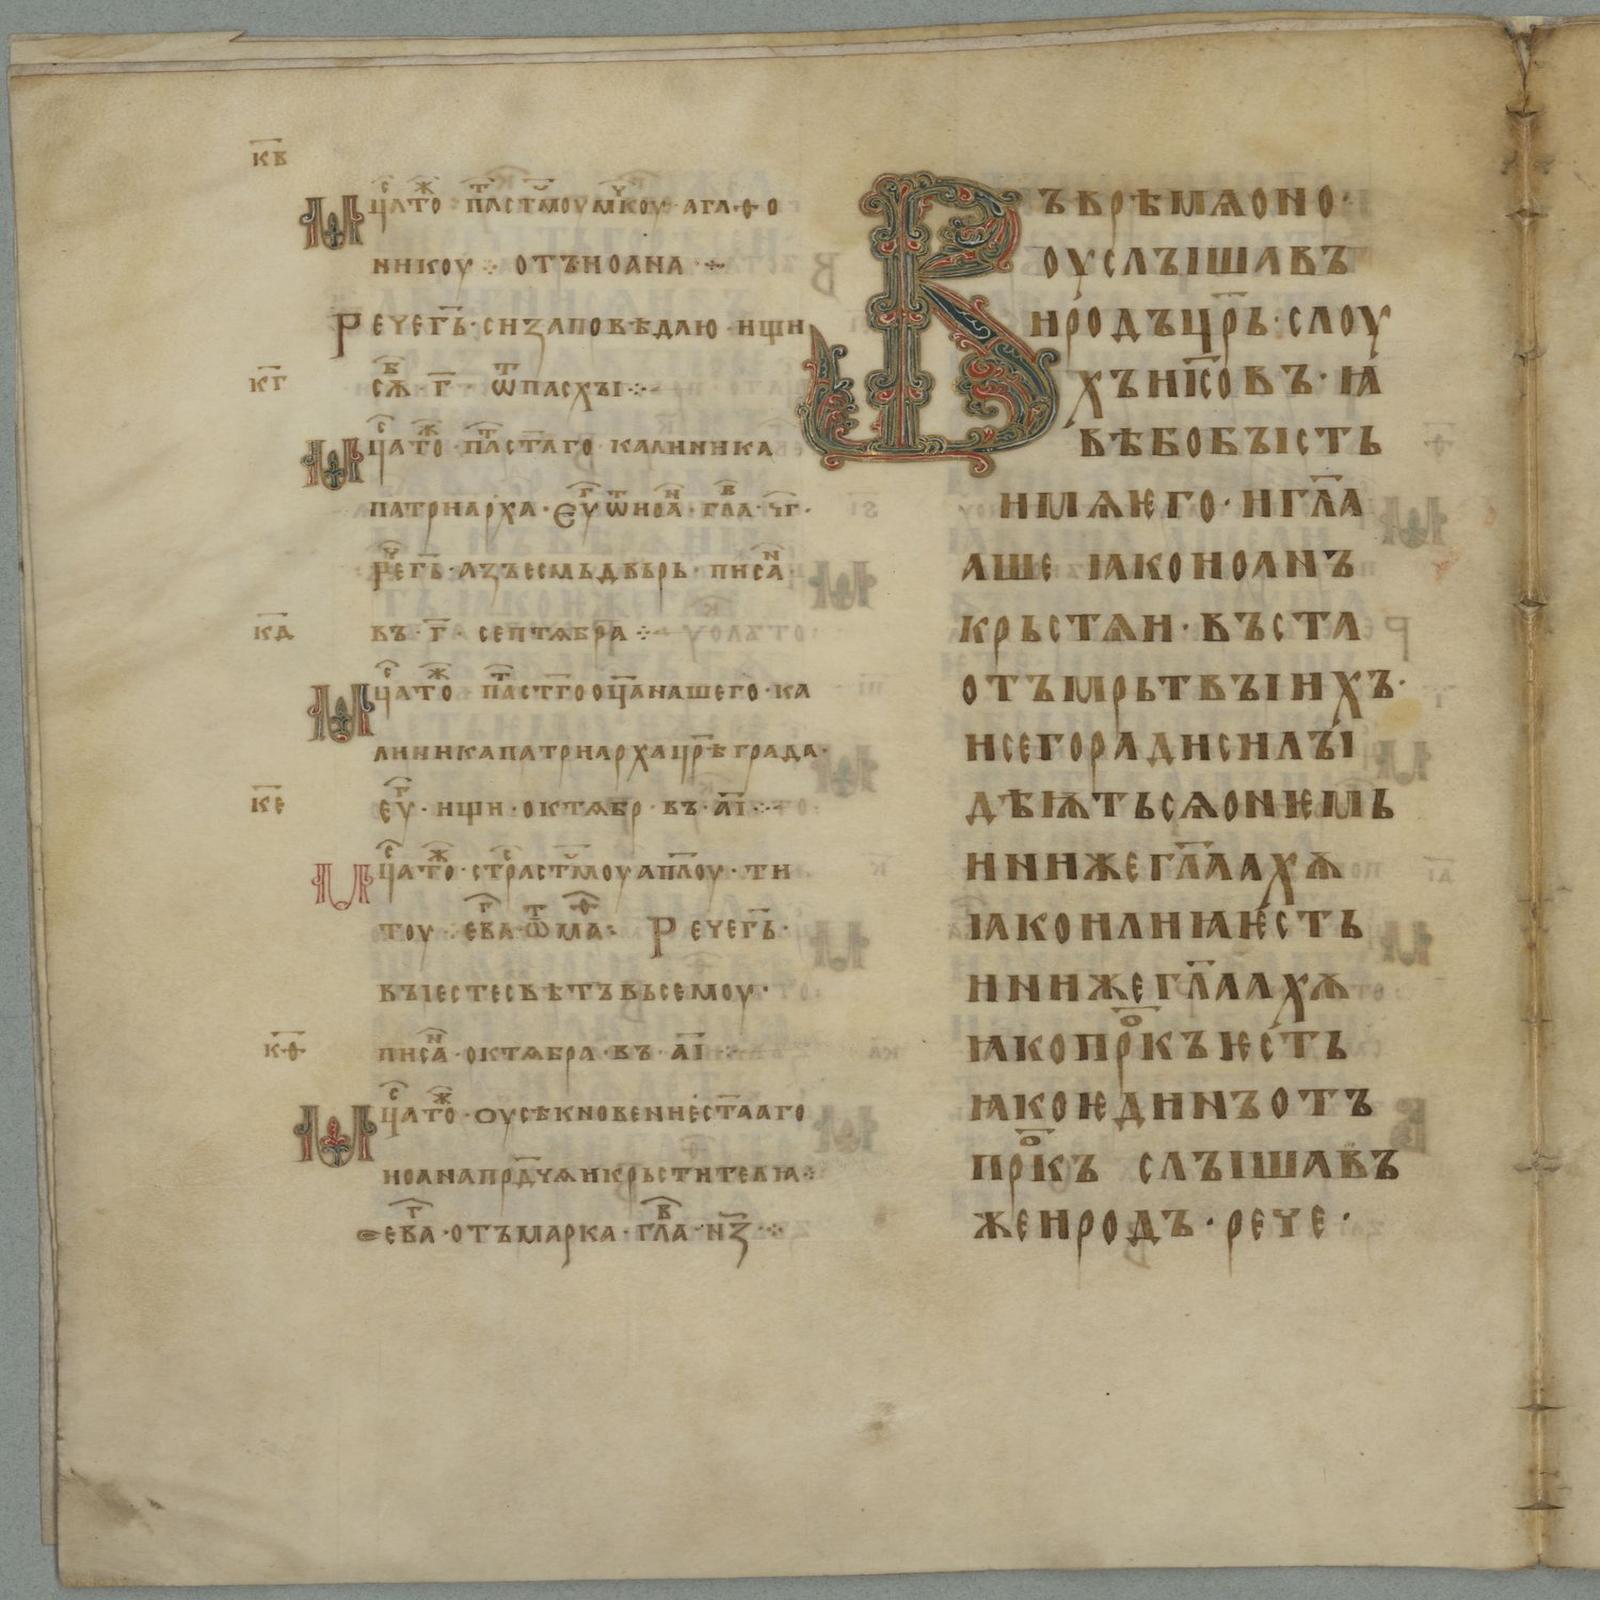 к҃в
Мⷭ҇цатⷤо · п҃аⷮ ст҃моумⷱ҇коу · агаѳо
никоу ⁘ отъиоана ⁘
Речегь҃ · сизаповѣдаю · ищи
к҃г
вⷭ҇ѫ · г҃ · ѿпасхꙑ ⁘
Мⷭ҇цатⷤо · паⷮ ст҃аго · калиника
патриарха · еуⷢ҇ ѿ иоаⷩ · глаⷡ · ч҃г ·
Рⷱ҇егь҃ · азъесмьдвьрь · писаⷩ
к҃д
въ · г҃ · септѧбра ⁘
Мⷭ҇цатⷤо паⷮ ст҃гооц҃анашего · ка
линикапатриархацр҃ѣграда ·
к҃е
еуⷢ҇ · ищи · октѧбр · въ · а҃і ⁘
Мⷭ҇цатⷤо · стрⷭ҇аст҃моуап҃лоу · ти
тоу · еⷢ҇ва · ѿ маⷴ · Речегь҃ ·
вꙑестесвѣтъвьсемоу ·
к҃ѳ
писаⷩ · октѧбра · въ · а҃і ⁘
Мⷭ҇цатⷤо · оусѣкновениест҃ааго
иоанапрд҃чѧикрьстителꙗ ⁘
еⷢ҇ва · отъмарка · глⷡа · н҃з ⁘
Въврѣмѧоно ·
оуслꙑшавъ
иродъцр҃ь · слоу
хъиі҃совъ · ꙗ
вѣбобꙑсть
имѧѥго · игл҃а
аше ꙗкоиоанъ
крьстѧи · въста
отъмрьтвꙑихъ ·
исегорадисилꙑ
дѣѭтьсѧоѥмь
инижегл҃аахѫ
ꙗкоилиꙗѥсть
инижегл҃аахѫ
ꙗкопрⷪ҇къѥсть
ꙗкоѥдинъотъ
прⷪ҇къ слꙑшавъ
жеиродъ · рече ·